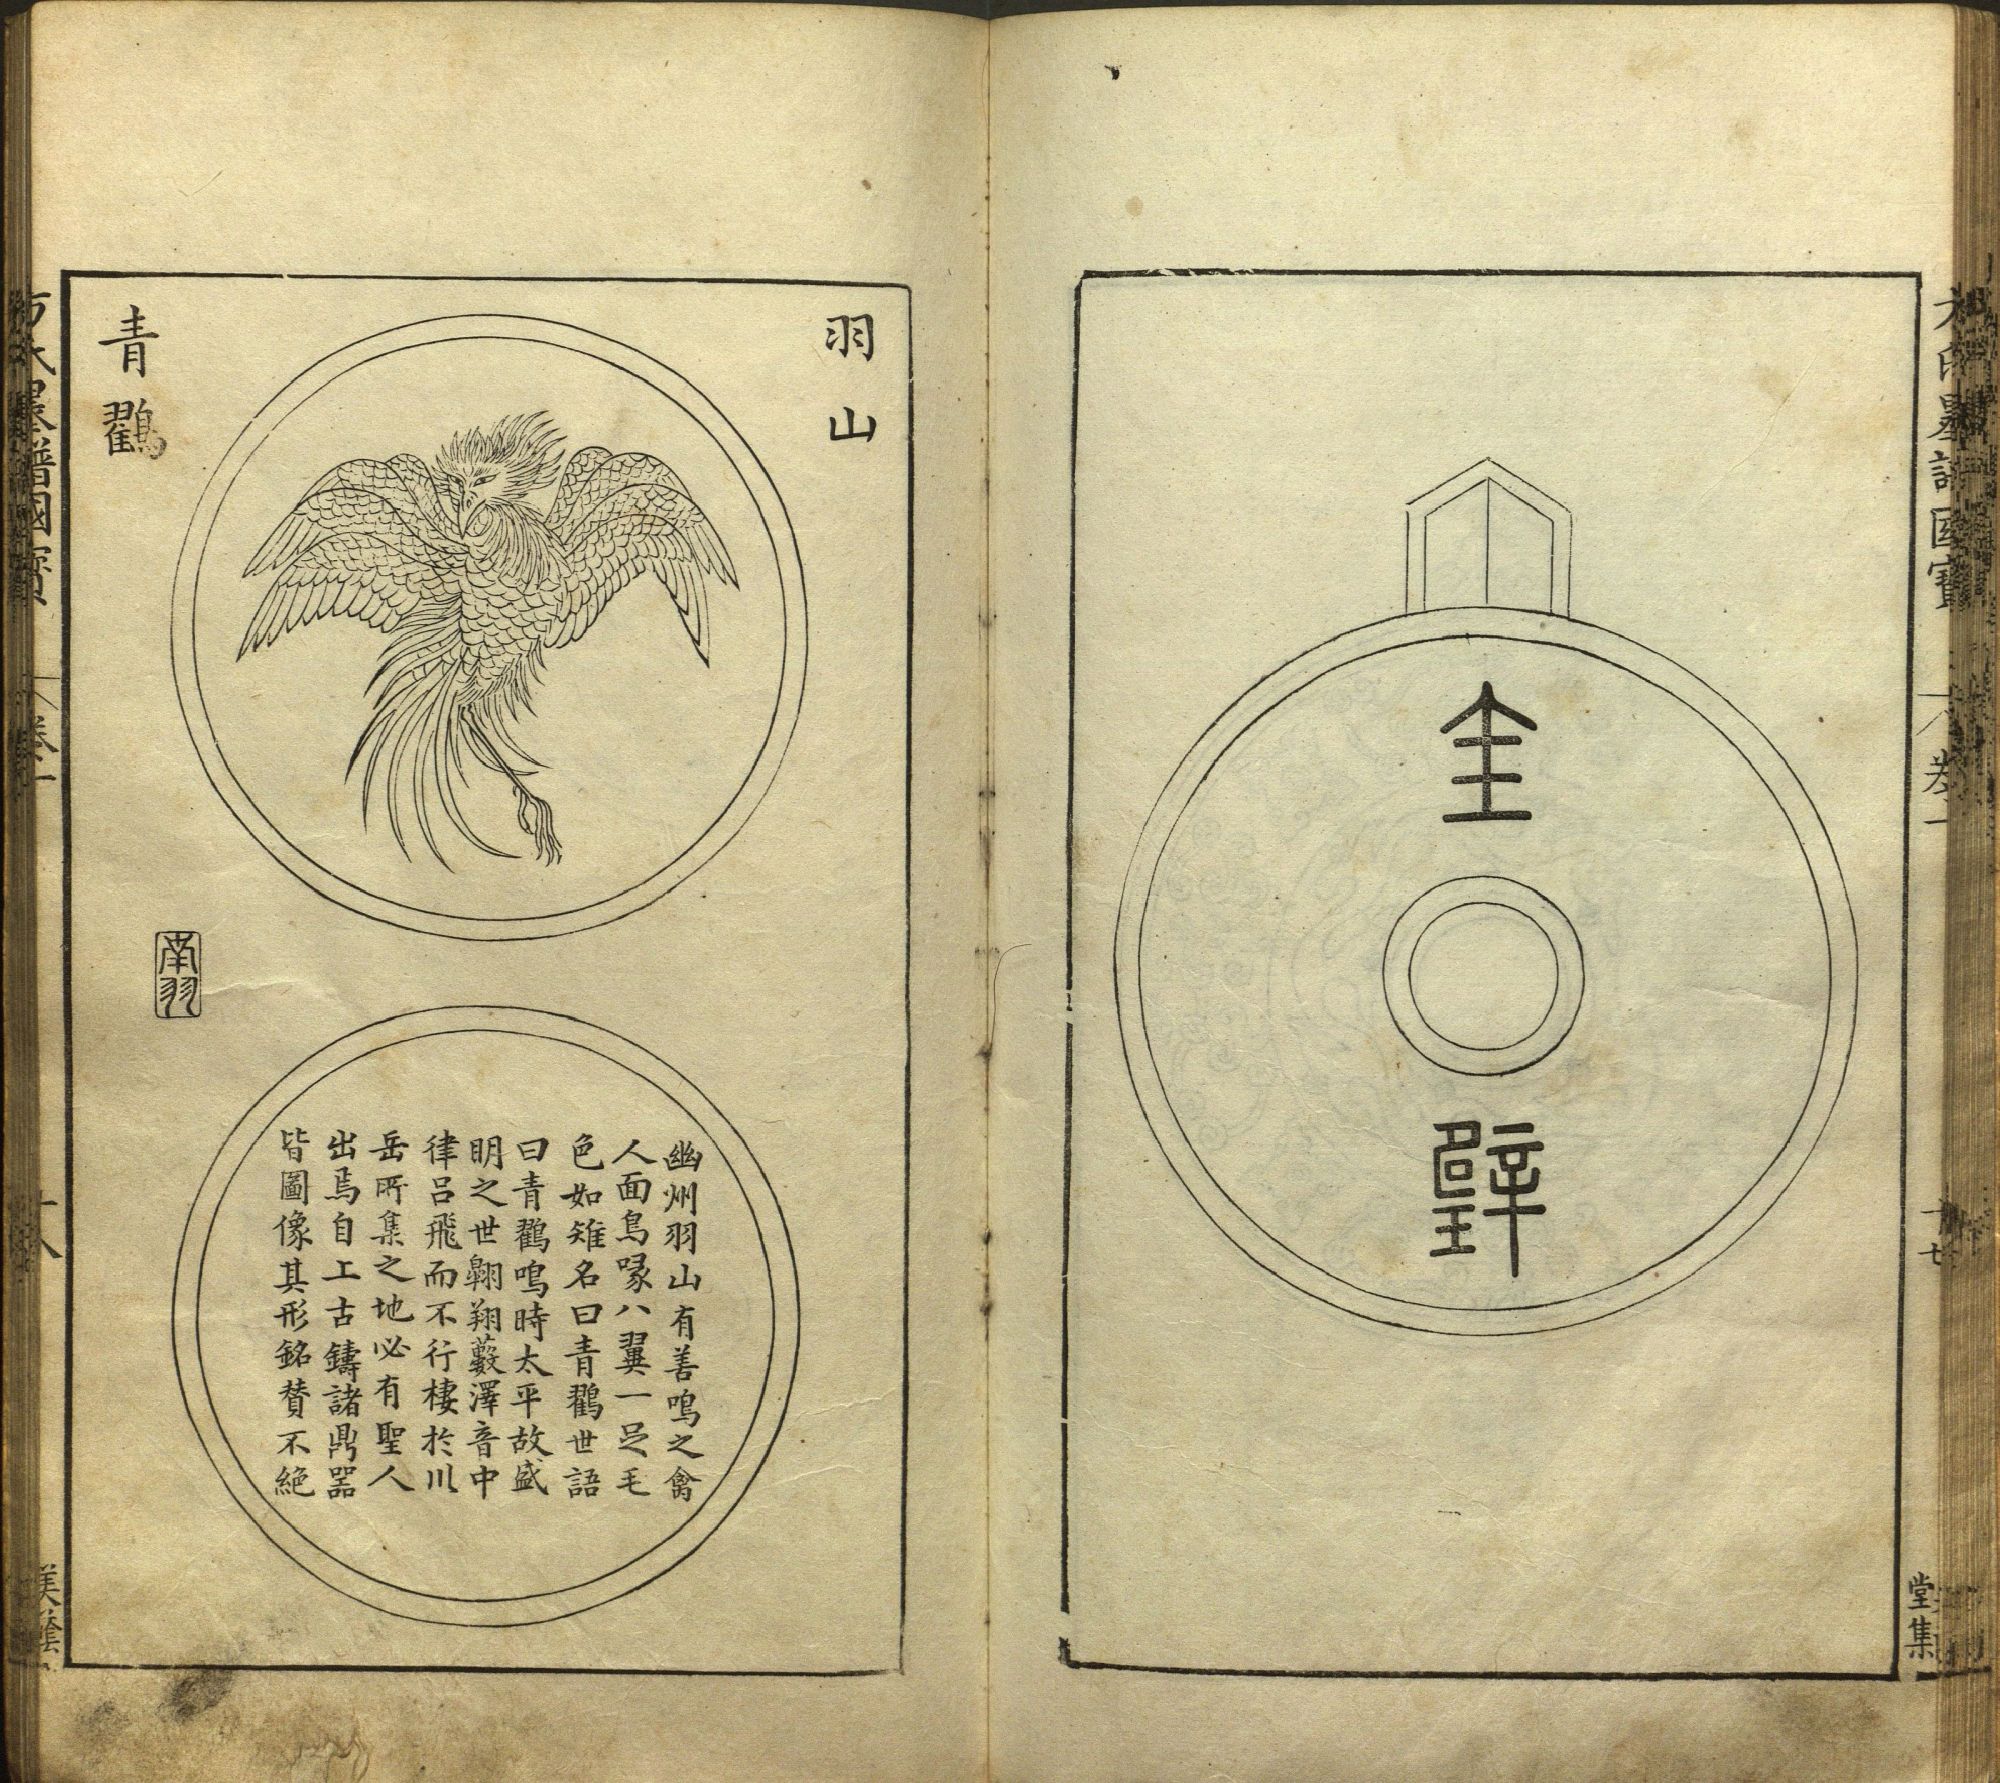 圭
璧
方氏墨譜國寶
卷一
十七
堂集
羽山
青鸐
南羽
幽州羽山有善鳴之禽
人面鳥喙八翼一足毛
色如雉名曰青鸐世語
曰青鸐鳴時太平故盛
明之世翺翔藪澤音中
律呂飛而不行棲於川
岳所集之地必有聖人
出焉自上古鑄諸鼎器
皆圖像其形銘贊不絕
方氏墨譜國寶
卷一
十八
美蔭